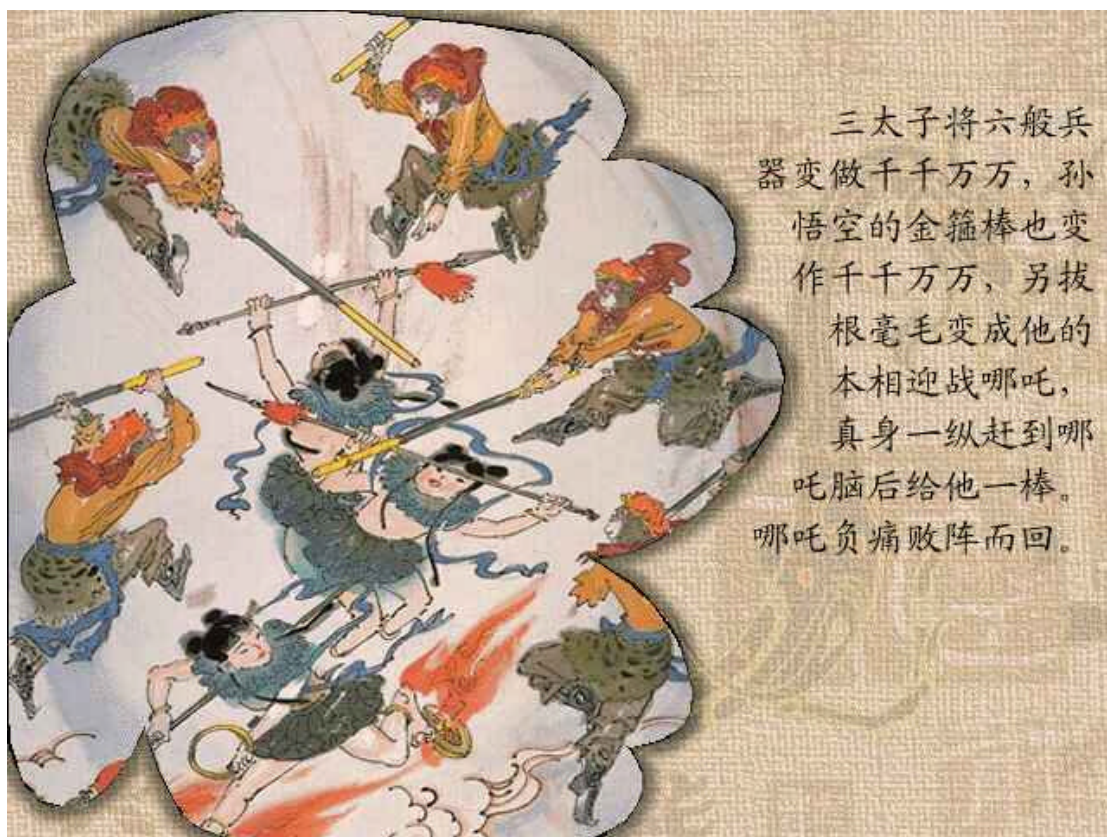 三太子将六般兵
器变做千千万万，孙
悟空的金箍棒也变
作千千万万、另拔
根毫毛变成他的
本相迎战哪吒，
真身一纵赶到哪
吒脑后给他一棒。
哪吒负痛败阵而回。